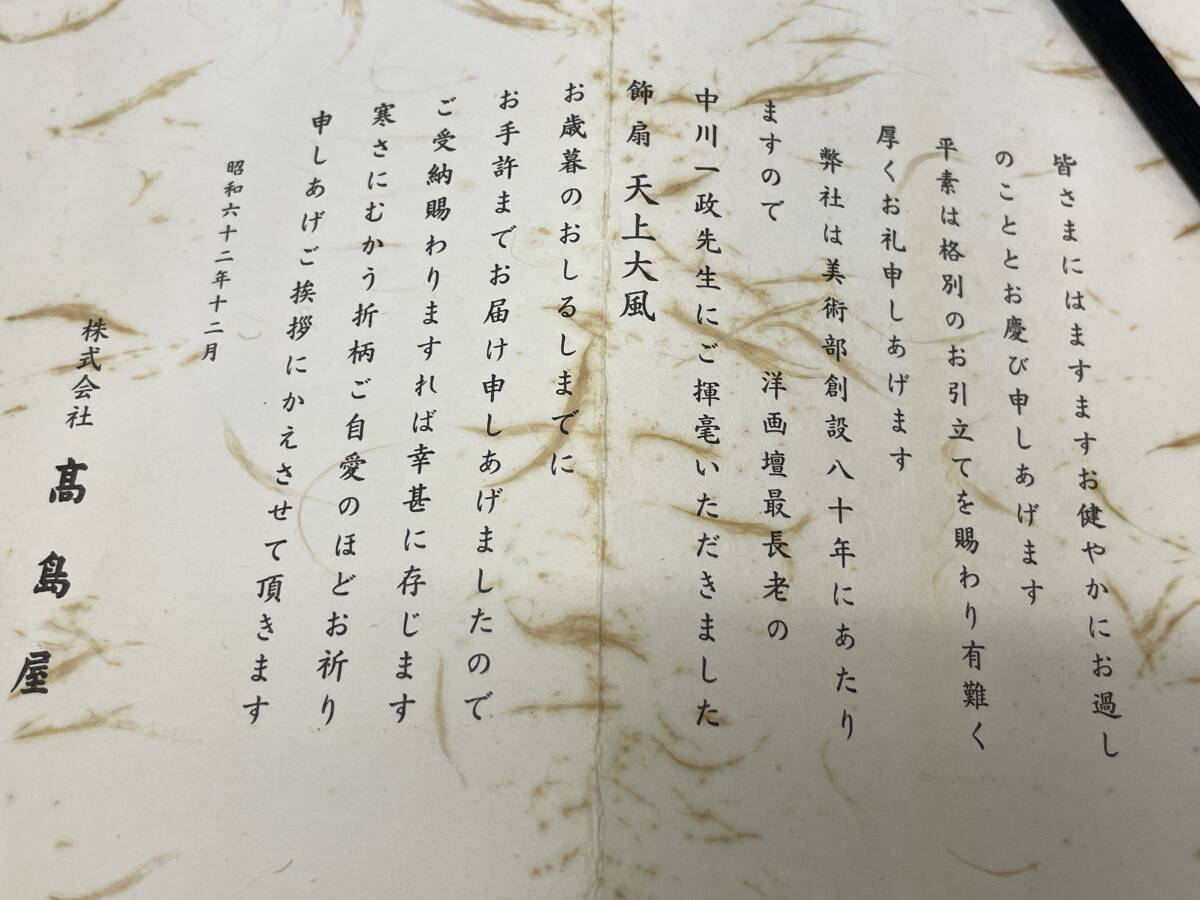 皆さまにはますますお健やかにお過し
のこととお慶び申しあげます
平素は格別のお引立てを賜わり有難く
厚くお礼申しあげます
弊社は美術部創設八十年にあたり
ますので　洋画壇最長老の
中川一政先生にご揮毫いただきました
飾扇 天上大風
お歳暮のおしるしまでに
お手許までお届け申しあげましたので
ご受納賜わりますれば幸甚に存じます
寒さにむかう折柄ご自愛のほどお祈り
申しあげご挨拶にかえさせて頂きます
昭和六十二年十二月
株式会社 髙島屋